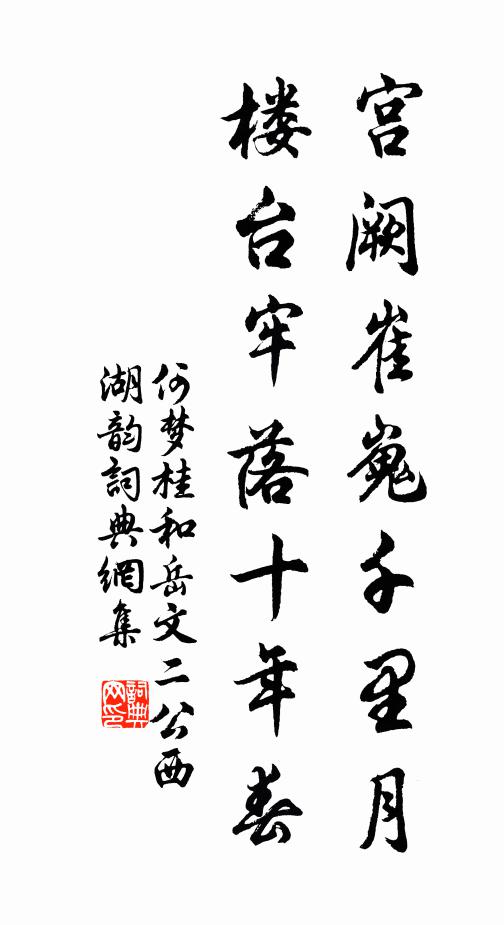 宫阙崔嵬千里月
楼台牢落十年春
何梦桂和岳文二公西
湖韵詞典網集
詞典
网印